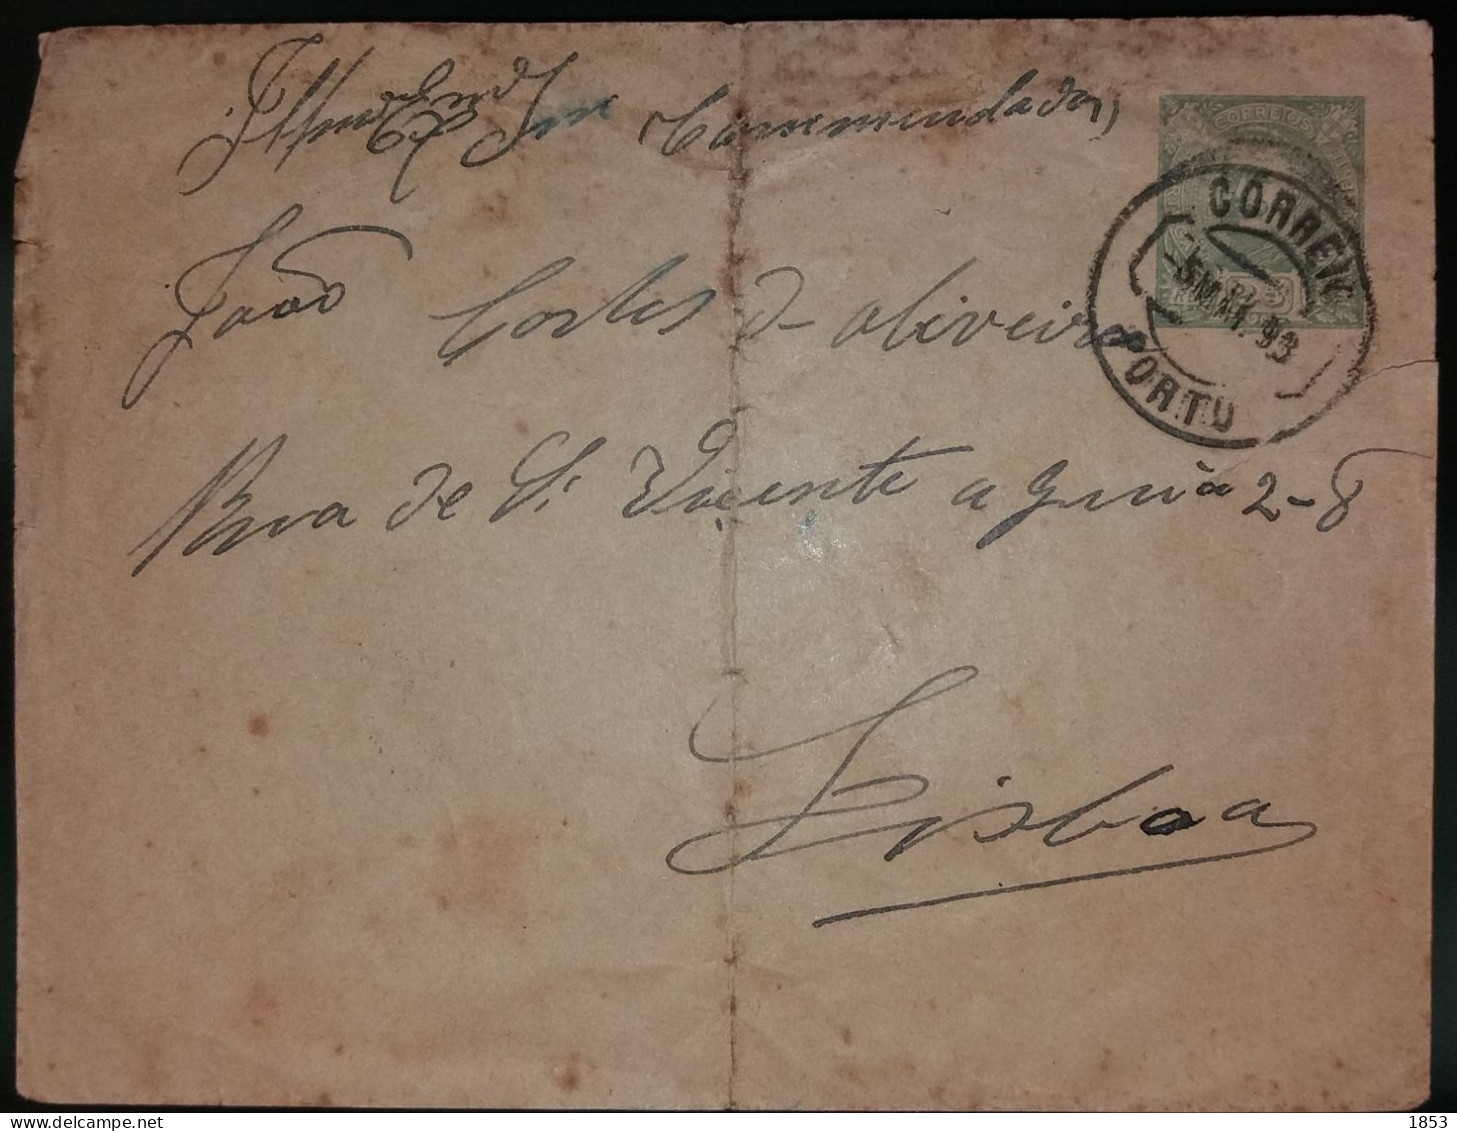 Illmo Exmo Snr Commendador
João Cortes d'oliveira
Rua de S. Vicente a guia 2-8
Lisboa
CORREIOS
25
CORREIO
5 MAI. 93
PORTO
www.delcampe.net
1853